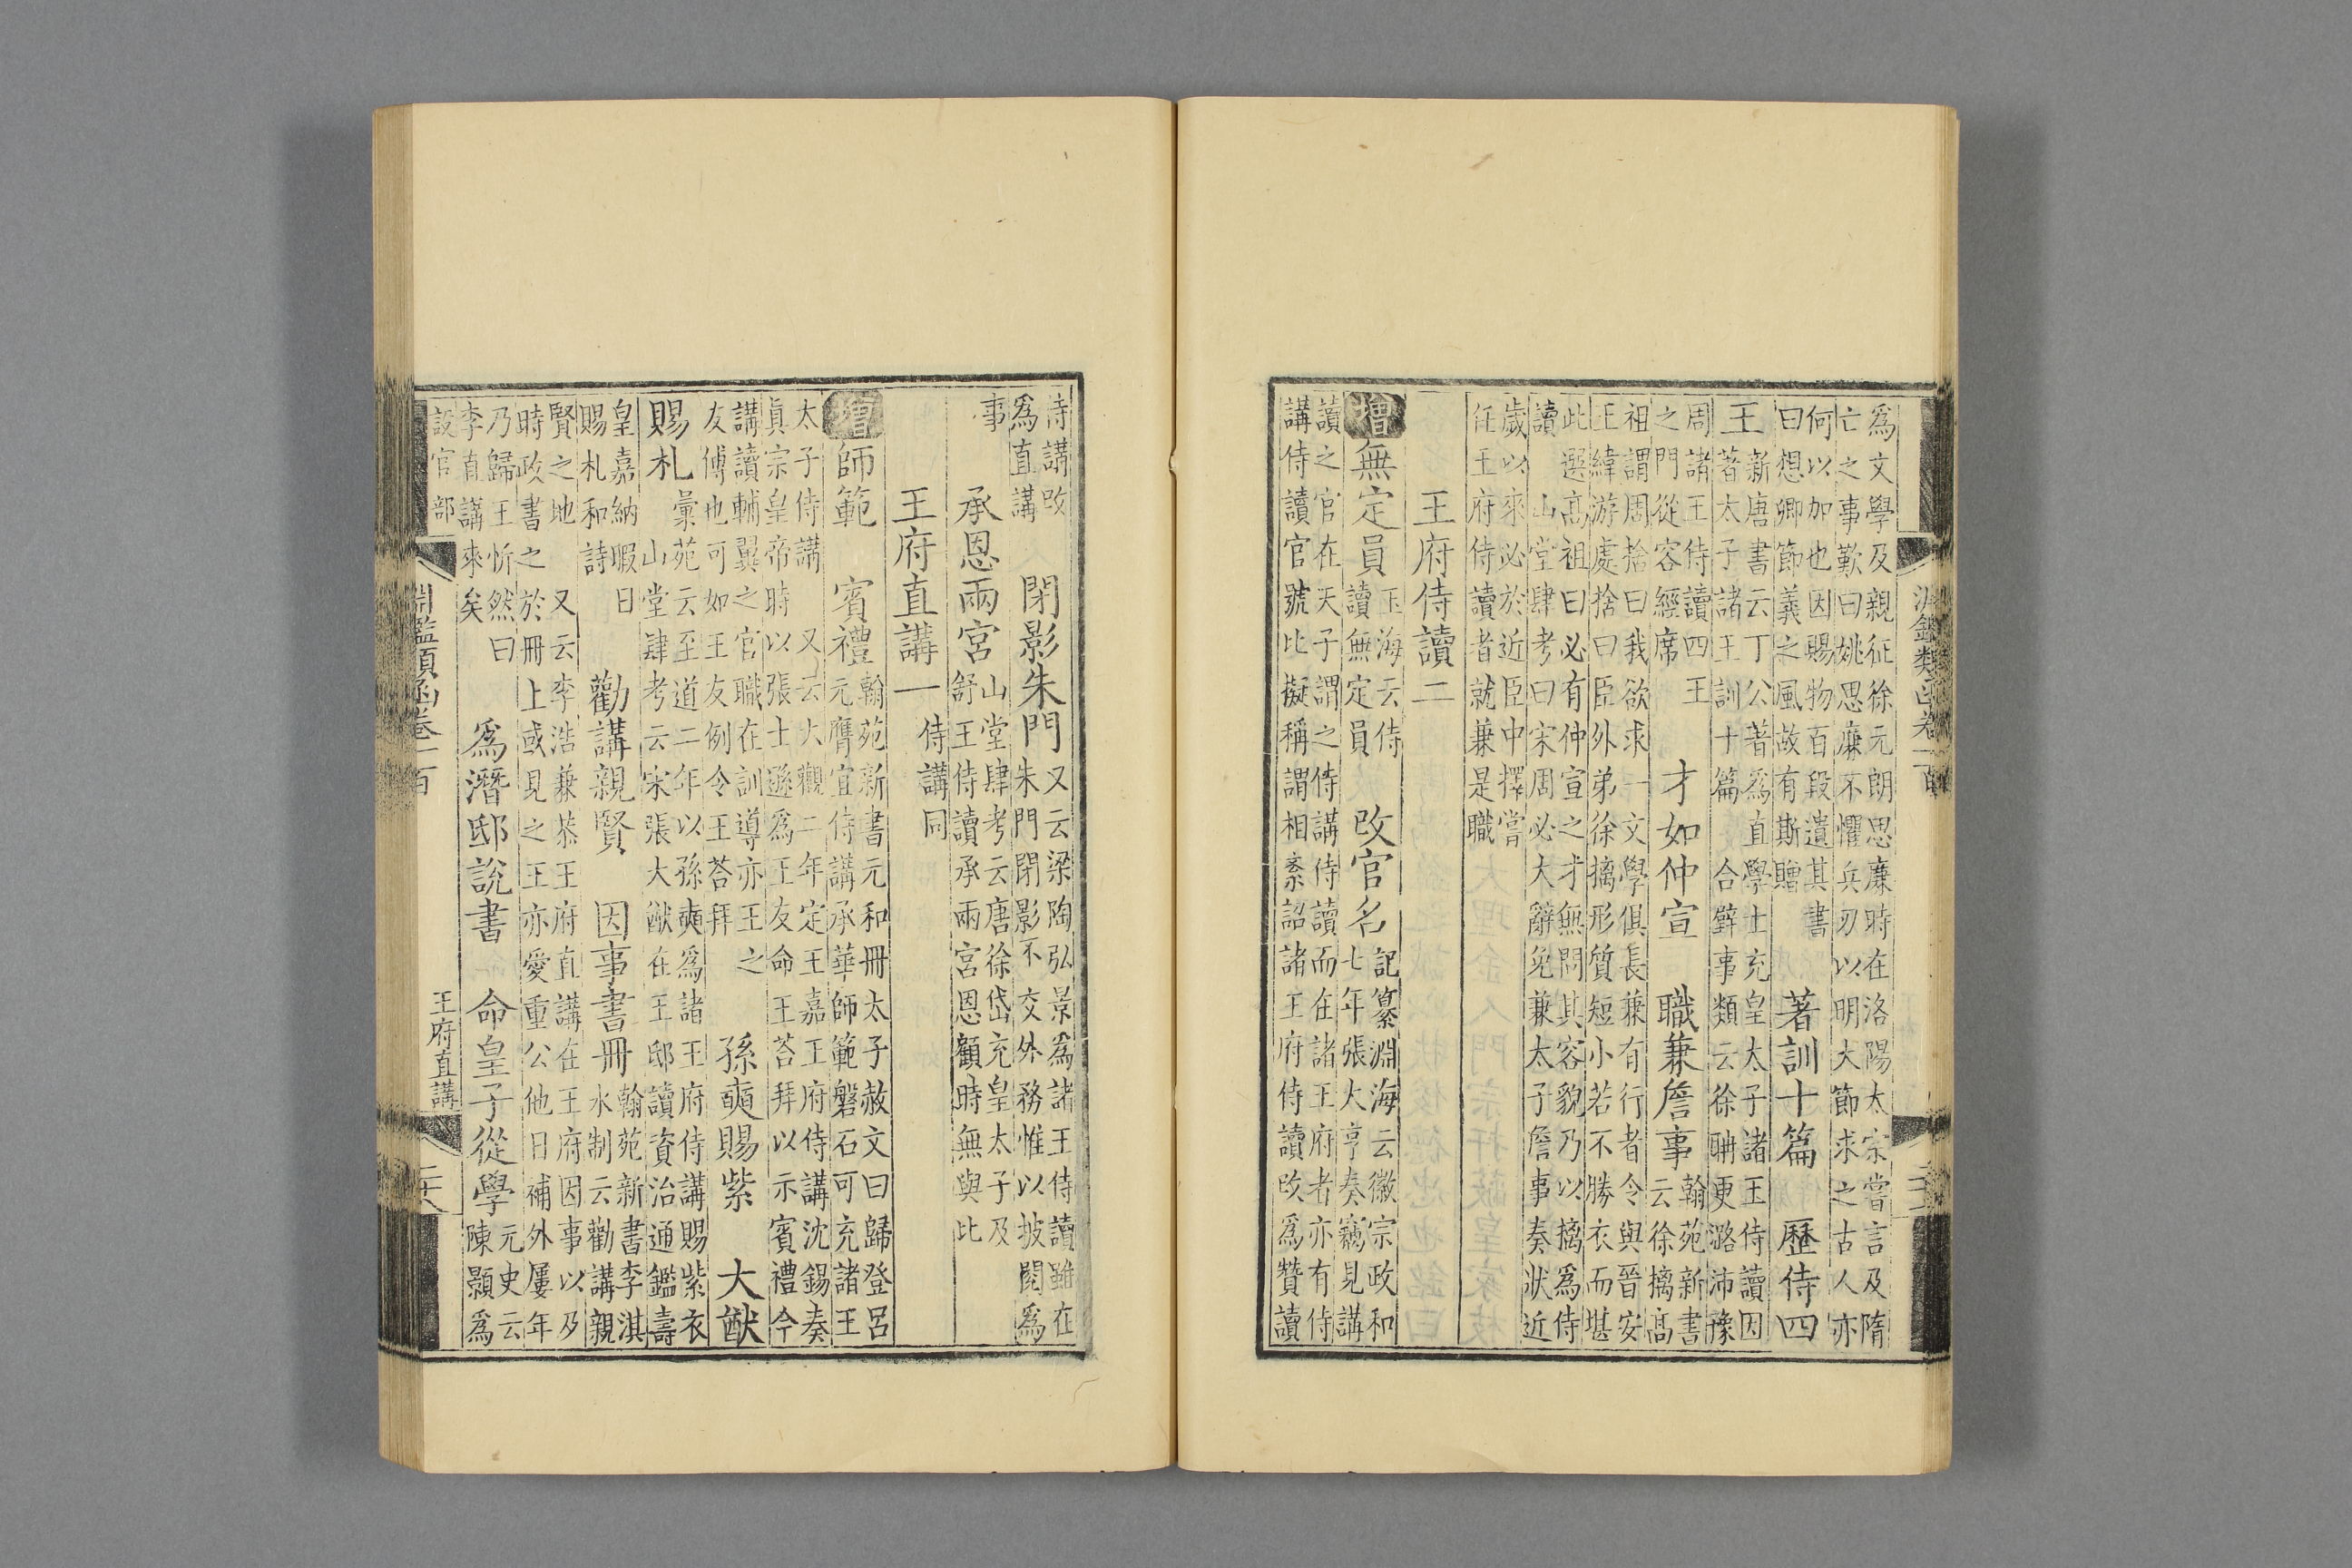 爲文學及親征徐元朗思廉時在洛陽太宗嘗言及隋
亡之事歎曰姚思廉不懼兵刃以明大節求之古人亦
何以加也因賜物百段遺其書
曰想卿節義之風故有斯贈
著訓十篇
歷侍四
王
新唐書云丁公著爲直學士充皇太子諸王侍讀因
著太子諸王訓十篇
合璧事類云徐聃更潞沛豫
周諸王侍讀四王
之門從容經席
才如仲宣
職兼詹事
翰苑新書
云徐摛高
祖謂周捨曰我欲求一文學俱長兼有行者令與晉安
王緯游處捨曰臣外弟徐摛形質短小若不勝衣而堪
此選高祖曰必有仲宣之才無問其容貌乃以摛爲侍
讀
山堂肆考曰宋周必大辭免兼太子詹事奏狀近
歲以來必於近臣中擇嘗
任王府侍讀者就兼是職
王府侍讀二
增無定員
玉海云侍
讀無定員
改官名
記纂淵海云徽宗政和
七年張大亨奏竊見講
讀之官在天子謂之侍講侍讀而在諸王府者亦有侍
講侍讀官號比擬稱謂相紊詔諸王府侍讀改爲贊讀
侍講改
爲直講
閉影朱門
又云梁陶弘景爲諸王侍讀雖在
朱門閉影不交外務惟以披閱爲
事
承恩兩宮
山堂肆考云唐徐岱充皇太子及
舒王侍讀承兩宮恩顧時無與比
王府直講一
侍講同
增師範
賓禮
翰苑新書元和冊太子赦文曰歸登呂
元膺宜侍講承華師範磐石可充諸王
太子侍講
又云大觀二年定王嘉王府侍講沈錫奏
真宗皇帝時以張士遜爲王友命王荅拜以示賓禮今
講讀輔翼之官職在訓導亦王之
友傅也可如王友例令王荅拜
孫奭賜紫
大猷
賜札
彙苑云至道二年以孫奭爲諸王府侍講賜紫衣
山堂肆考云宋張大猷在王邸讀資治通鑑壽
皇嘉納暇日
賜札和詩
勸講親賢
因事書冊
翰苑新書李淇
水制云勸講親
賢之地
又云李浩兼恭王府直講在王府因事以及
時政書之於冊上或見之王亦愛重公他日補外屢年
乃歸王忻然曰
李直講來矣
爲潛邸說書
命皇子從學
元史云
陳顥爲
設官部
淵鑑類函卷一百
王府直講